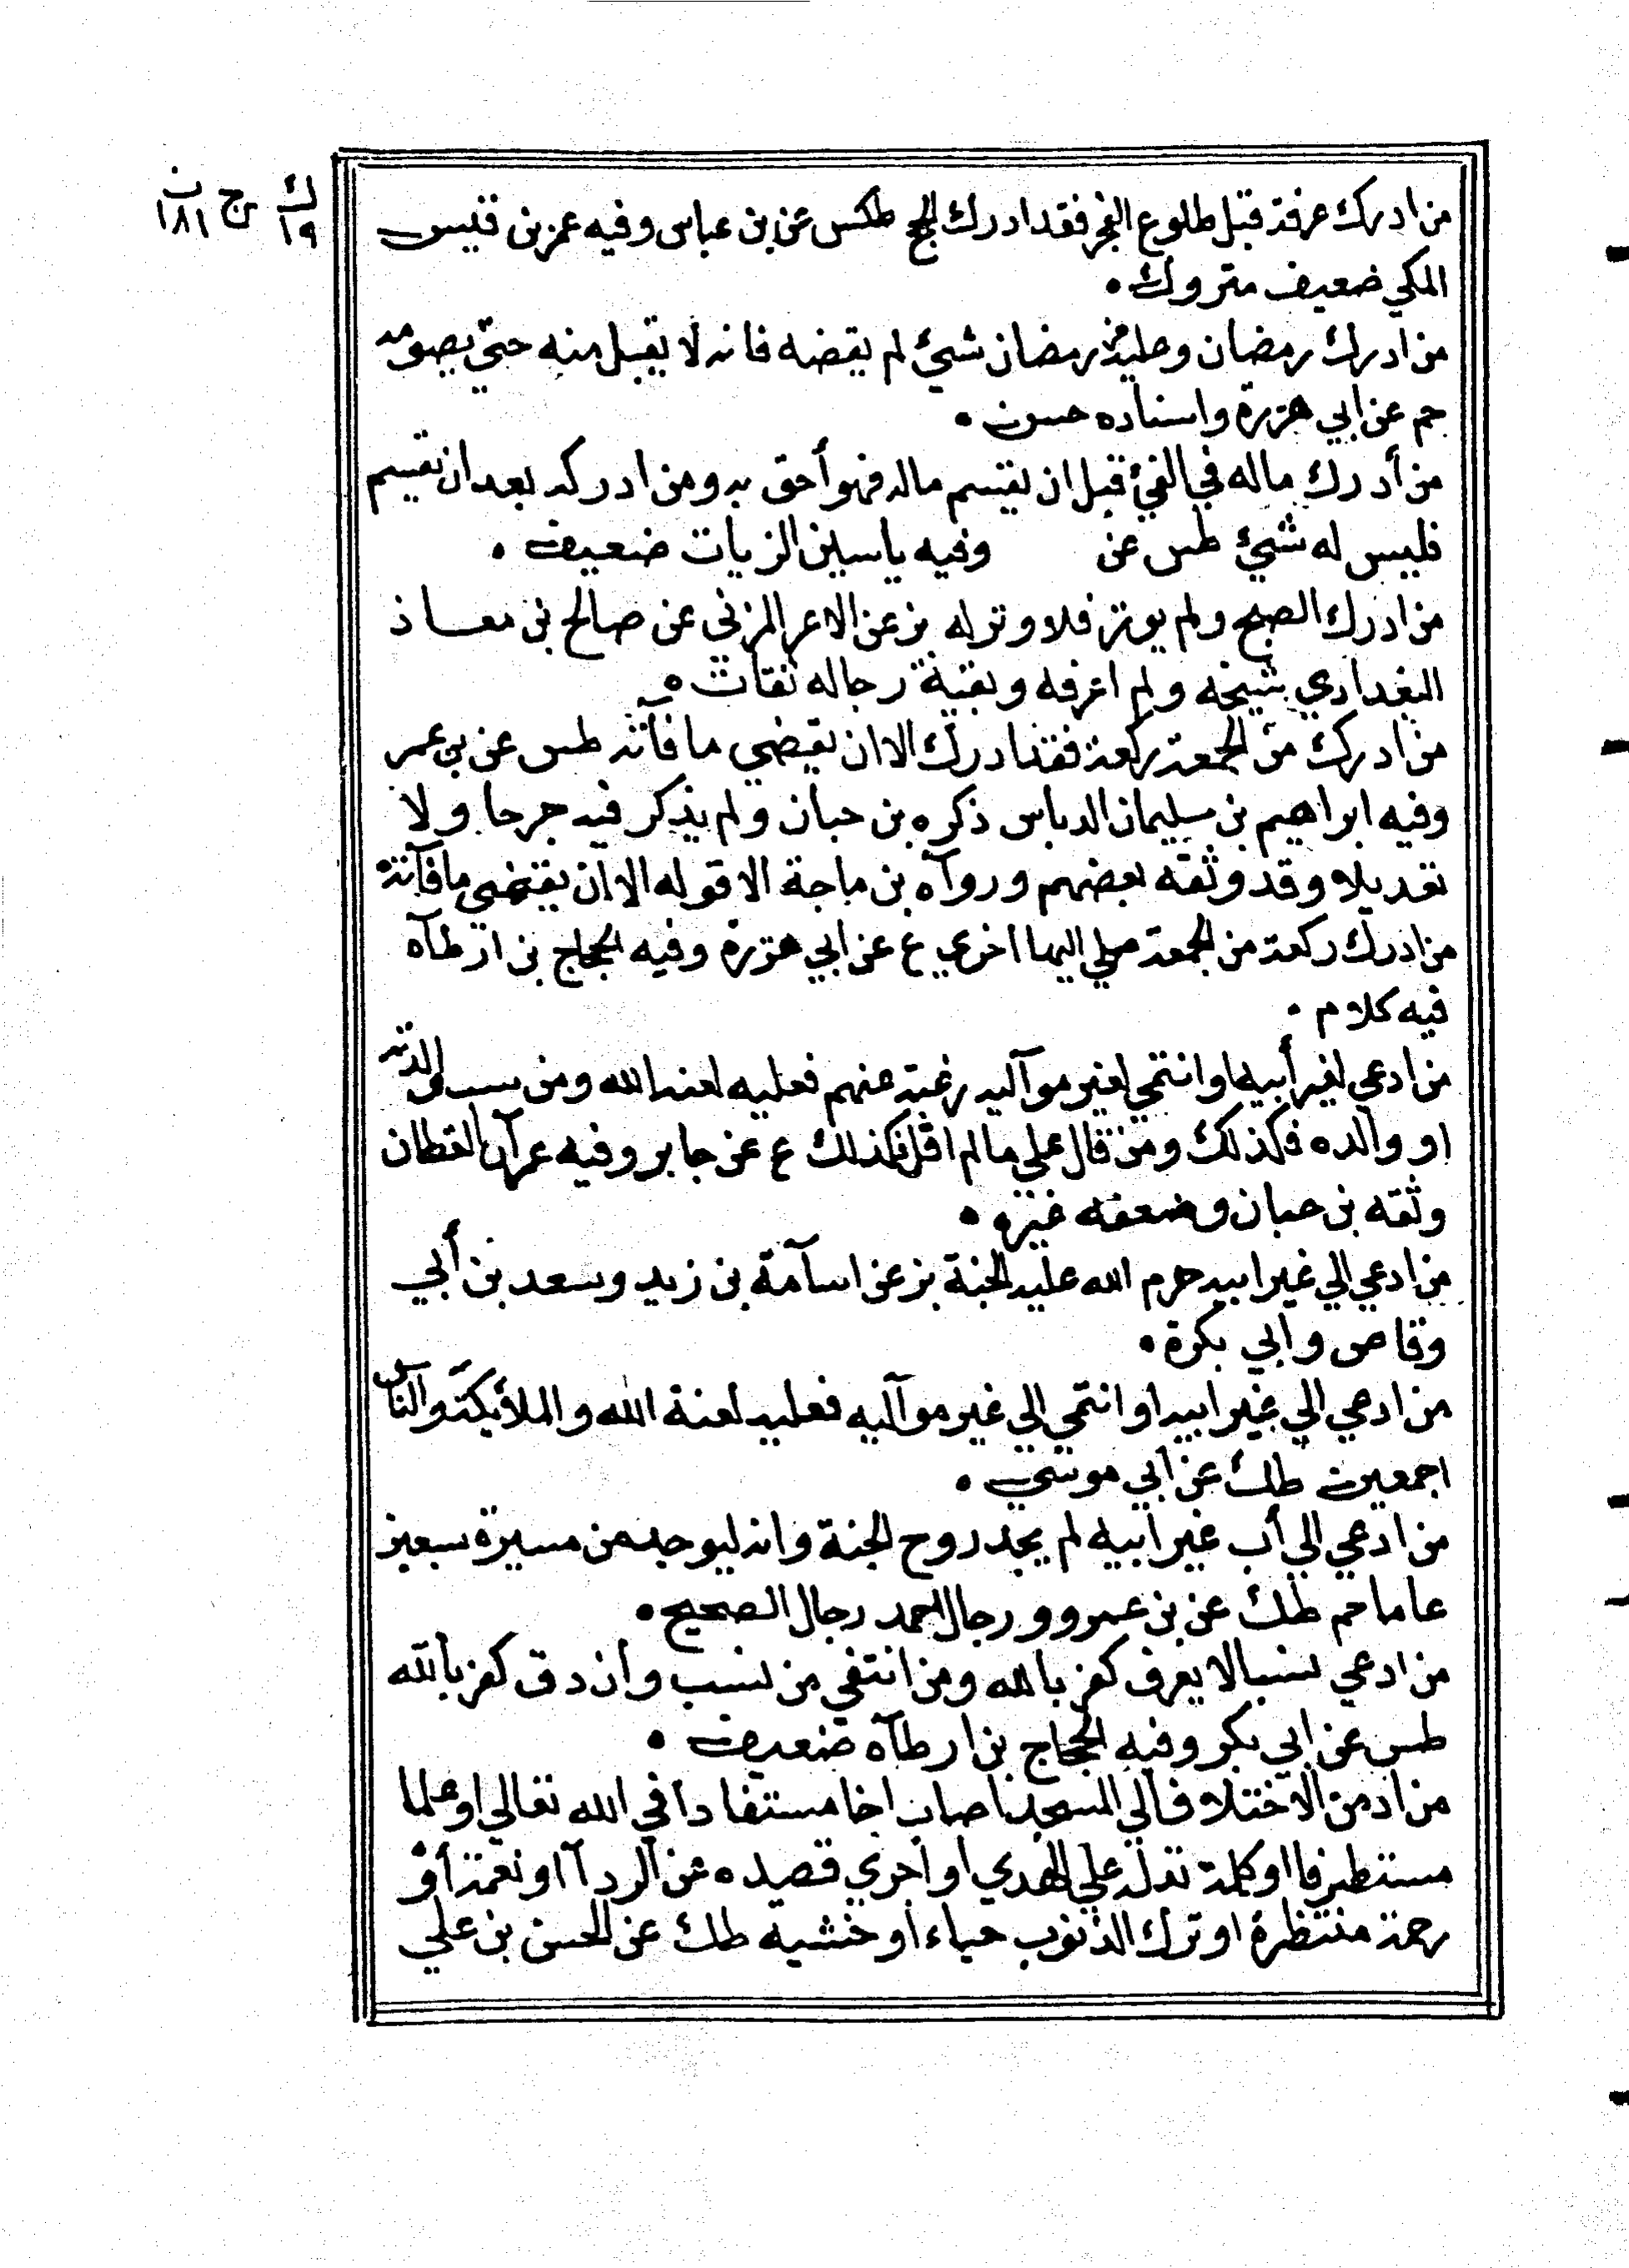 ك ١٩ ج ن ١٨١
من ادرك عرفة قبل طلوع الفجر فقد ادرك الحج طكس عن بن عباس وفيه عمر بن قيس
المكي ضعيف متروك .
من ادرك رمضان وعليه من رمضان شيئ لم يقضه فانه لا يقبل منه حتي يصومه
حم عن ابي هريرة واسناده حسن .
من أدرك ماله في الفيئ قبل ان يقسم ماله فهو أحق به ومن ادركه بعد ان يقسم
فليس له شيئ طس عن وفيه ياسين الزيات ضعيف .
من ادرك الصبح ولم يوتر فلا وتر له بز عن الاغر المزني عن صالح بن معاذ
البغدادي شيخه ولم اعرفه وبقية رجاله ثقات .
من ادرك من الجمعة ركعة فقد ادرك الا ان يقضي ما فآته طس عن بن عمر
وفيه ابراهيم بن سليمان الدباس ذكره بن حبان ولم يذكر فيه جرحا ولا
تعديلا وقد وثقه بعضهم وروآه بن ماجة الا قوله الا ان يقضي ما فآته
من ادرك ركعة من الجمعة صلي اليها اخري ع عن ابي هريرة وفيه الحجاج بن ارطآه
فيه كلام .
من ادعي لغير أبيه او انتمي لغير موآليه رغبة عنهم فعليه لعنة الله ومن سب والديه
او والده فكذلك ومن قال علي ما لم اقل فكذلك ع عن جابر وفيه عمرآن القطان
وثقه بن حبان وضعفه غيره .
من ادعي الي غير ابيه حرم الله عليه الجنة بز عن اسآمة بن زيد وسعد بن أبي
وقاص وابي بكرة .
من ادعي الي غير ابيه او انتمي الي غير موآليه فعليه لعنة الله والملائيكة والناس
اجمعين طك عن ابي موسي .
من ادعي الي أب غير ابيه لم يجد روح الجنة وانه ليوجد من مسيرة سبعين
عاما حم طك عن بن عمرو ورجال احمد رجال الصحيح .
من ادعي نسبا لا يعرف كفر بالله ومن انتفي من نسب وان دق كفر بالله
طس عن ابي بكر وفيه الحجاج بن ارطآه ضعيف .
من ادمن الاختلاف الي المسجد اصاب اخا مستفادا في الله تعالي او علما
مستطرفا او كلمة تدله علي الهدي او اخري تصيده عن الردآ او نعمة أو
رحمة منتظرة او ترك الذنوب حياء او خشية طك عن الحسن بن علي